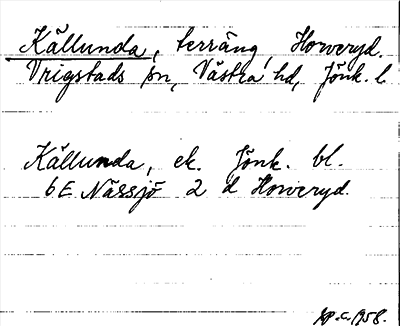 Källunda, terräng, Horveryd.
Vrigstads sn, Västra hd, Jönk. l.
Källunda, ek. Jönk. bl.
6E Nässjö 2 d Horveryd.
1958.